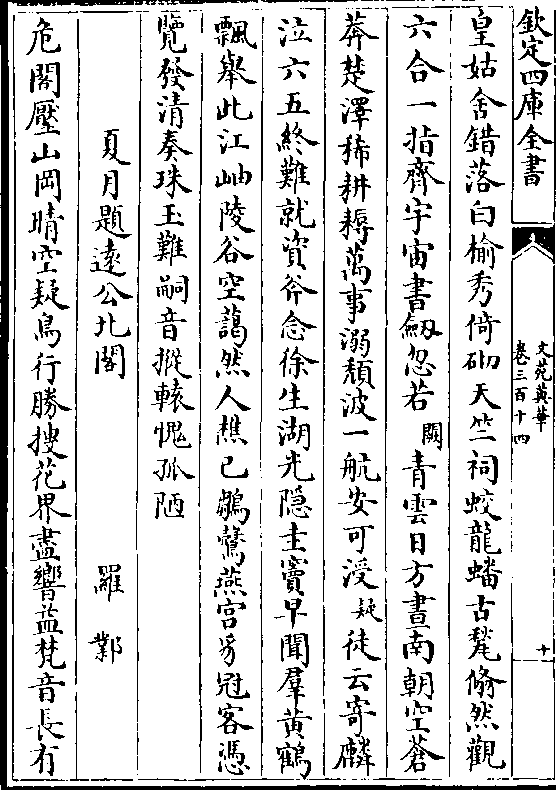 欽定四庫全書
文苑英華
卷三百十四
十
皇姑舍錯落白榆秀倚砌天竺祠蛟龍蟠古甃翛然觀
六合一指齊宇宙書劒忽若闕青雲日方晝南朝空蒼
莽楚澤稀耕耨萬事溺頽波一航安可涭疑徒云寄麟
泣六五終難就資斧念徐生湖光隠圭竇早聞羣黄鶴
飄舉此江岫陵谷空藹然人樵已鶵鷟燕宫豸冠客憑
覽發清奏珠玉難嗣音摐轅愧孤陋
夏月題逺公北閣 羅鄴
危閣壓山岡晴空疑鳥行勝搜花界盡響益梵音長有